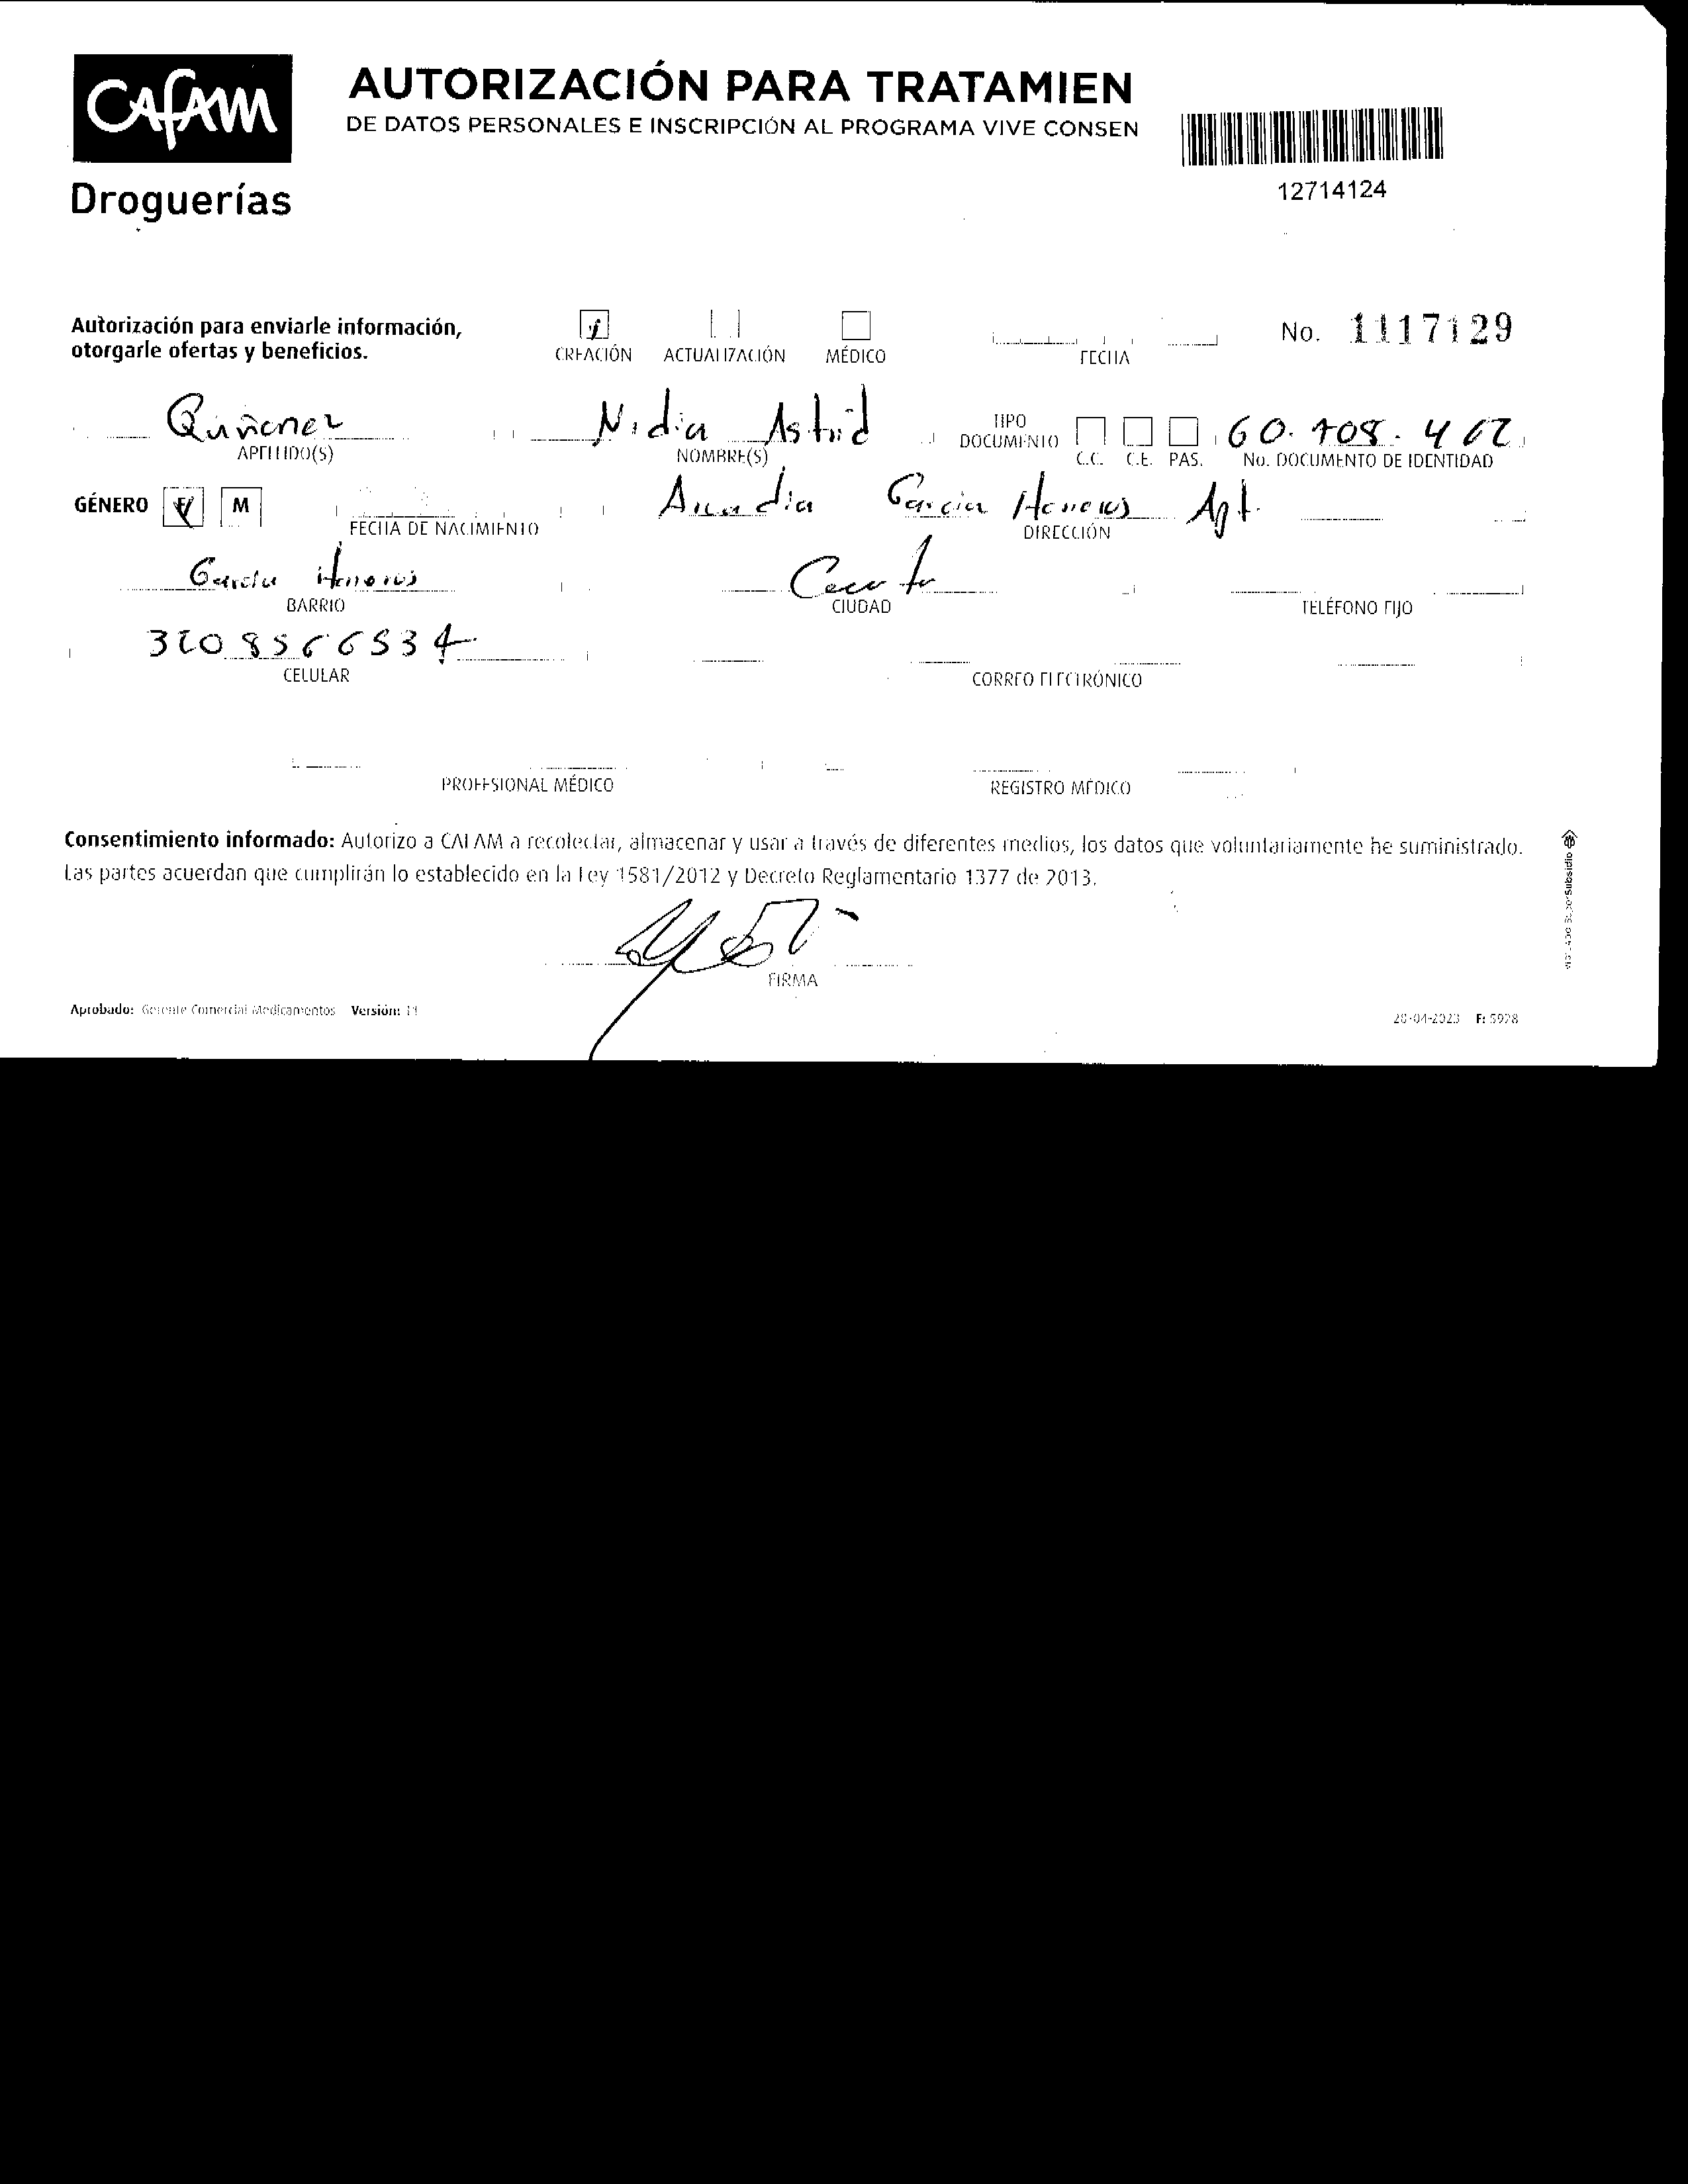 CAFAM
Droguerías
AUTORIZACIÓN PARA TRATAMIEN
DE DATOS PERSONALES E INSCRIPCIÓN AL PROGRAMA VIVE CONSEN
12714124
Autorización para enviarle información,
otorgarle ofertas y beneficios.
CREACIÓN ACTUALIZACIÓN MÉDICO
FECHA
No. 1117129
Nidia Astrid
APELLIDO(S) NOMBRE(S)
TIPO
DOCUMENTO
C.C. C.E. PAS. No. DOCUMENTO DE IDENTIDAD
GÉNERO F M
Garcia Apt.
FECHA DE NACIMIENTO DIRECCIÓN
BARRIO CIUDAD TELÉFONO FIJO
CELULAR CORREO ELECTRÓNICO
PROFESIONAL MÉDICO REGISTRO MÉDICO
Consentimiento informado: Autorizo a CAFAM a recolectar, almacenar y usar a través de diferentes medios, los datos que voluntariamente he suministrado.
Las partes acuerdan que cumplirán lo establecido en la Ley 1581/2012 y Decreto Reglamentario 1377 de 2013.
FIRMA
Aprobado: Gerente Comercial Medicamentos Versión: 11
20-04-2023 F: 5928